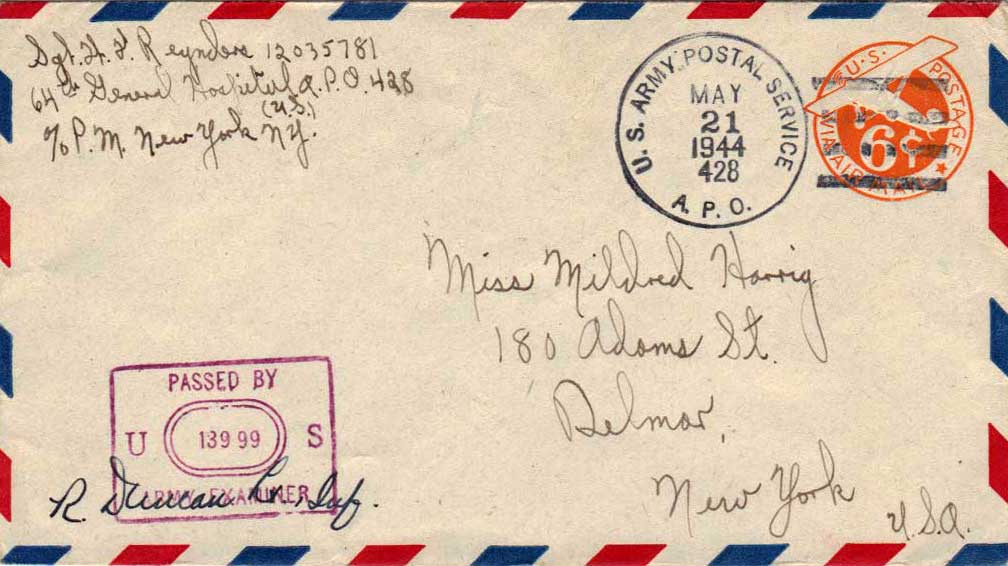 Sgt. H. F. Reynders 12035781
64th General Hospital A.P.O. 428
(U.S.)
℅ P.M. New York NY.
U.S. ARMY POSTAL SERVICE
MAY
21
1944
428
A.P.O.
U.S. POSTAGE
6¢
VIA AIR MAIL
Miss Mildred Harrig
180 Adams St.
Delmar,
New York
U.S.A.
PASSED BY
U 13999 S
ARMY EXAMINER
R. Duncan Inf.